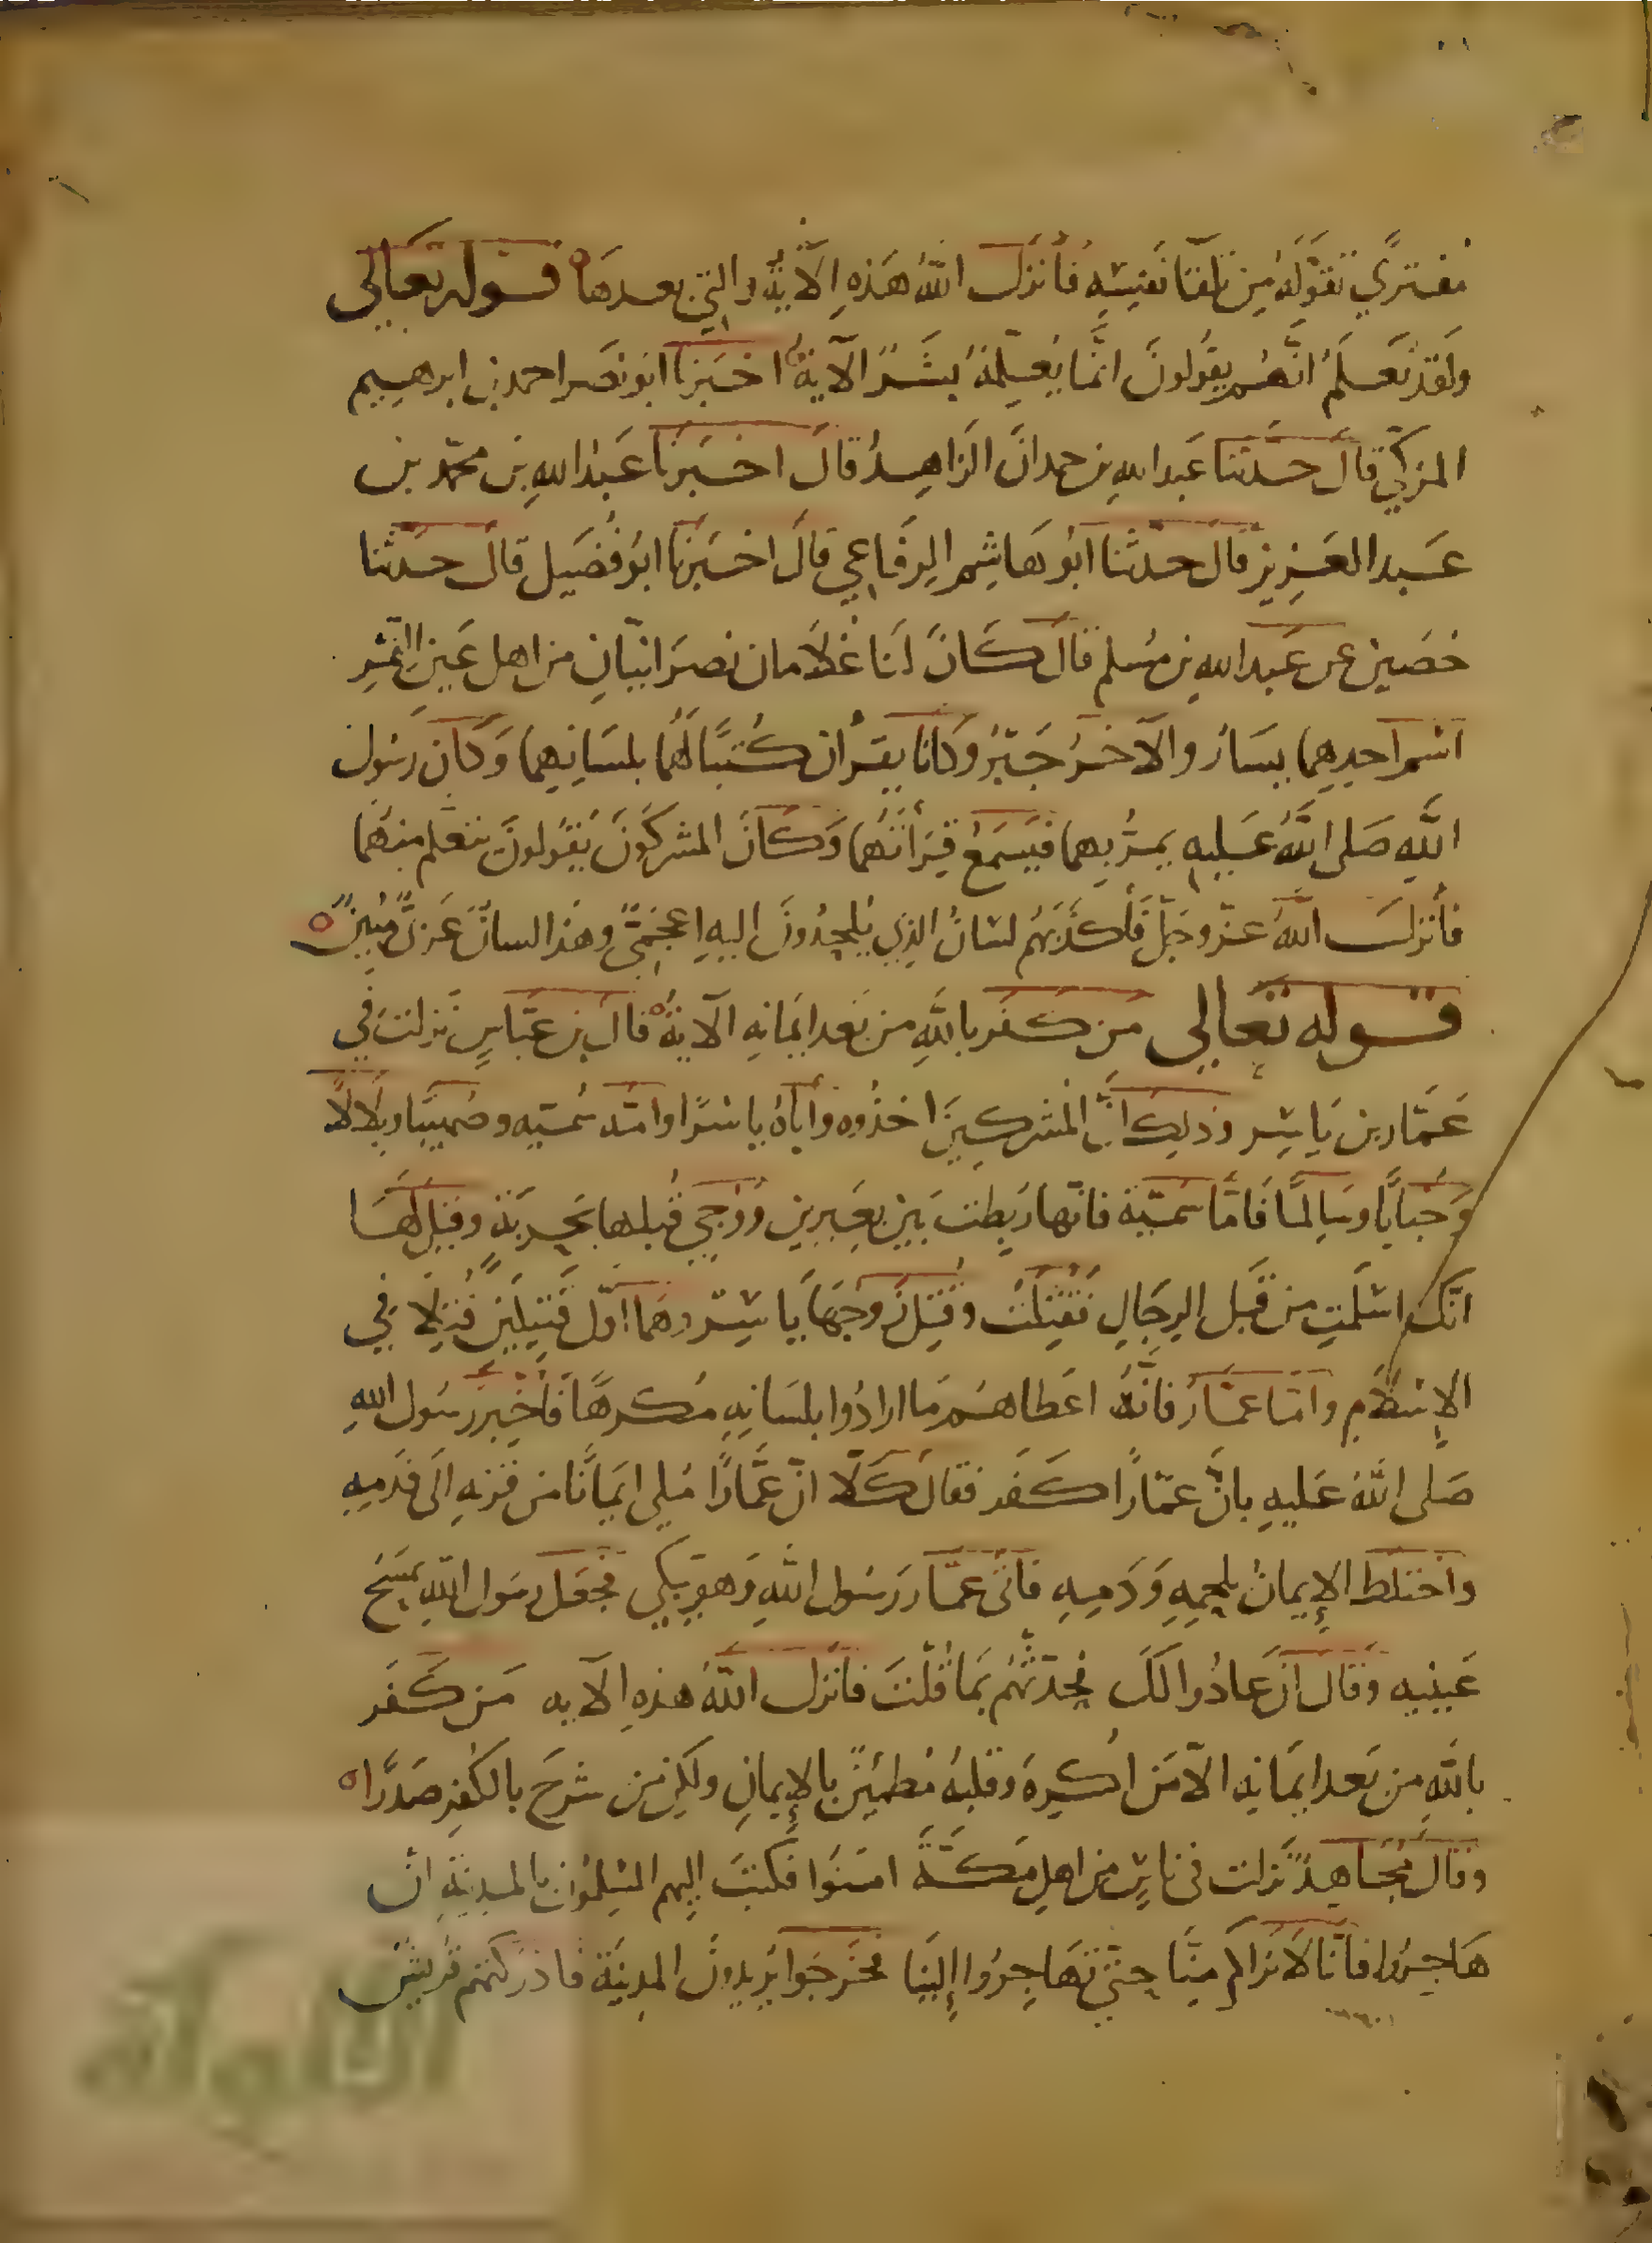 مفتري تقوله من تلقا نفسه فأنزل الله هذه الآية والتي بعدها قوله تعالى
ولقد نعلم انهم يقولون انما يعلمه بشر الآية اخبرنا ابو نصر احمد بن ابرهيم
المزكي قال حدثنا عبد الله بن حمدان الزاهد قال اخبرنا عبد الله بن محمد بن
عبد العزيز قال حدثنا ابو هاشم الرفاعي قال اخبرنا ابو فضيل قال حدثنا
خصين عن عبد الله بن مسلم قال كان لنا غلامان نصرانيان من اهل عين التمر
اسم احدهما يسار والآخر جبر وكانا يقرأن كتبا لهما بلسانهما وكان رسول
الله صلى الله عليه يمر بهما فيسمع قرأتهما وكان المشركون يقولون يتعلم منهما
فأنزل الله عز وجل فأكذبهم لسان الذي يلحدون اليه اعجمي وهذا لسان عربي مبين
قوله تعالى من كفر بالله من بعد ايمانه الآية قال بن عباس نزلت في
عمار بن ياسر وذلك ان المشركين اخذوه وأباه ياسرا وامه سمية وصهيبا وبلالا
وخبابا وسالما فأما سمية فانها ربطت بين بعيرين ووجي قبلها بحربة وقيل لها
انك اسلمت من قبل الرجال فقتلت وقتل زوجها ياسر وهما اول قتيلين قتلا في
الإسلام وأما عمار فانه اعطاهم ما ارادوا بلسانه مكرها فأخبر رسول الله
صلى الله عليه بان عمارا كفر فقال كلا ان عمارا ملي ايمانا من قرنه الى قدمه
واختلط الإيمان بلحمه ودمه فأتى عمار رسول الله وهو يبكي فجعل رسول الله يمسح
عينيه وقال ان عادوا لك فحدثهم بما قلت فأنزل الله هذه الآيه من كفر
بالله من بعد ايمانه الا من اكره وقلبه مطمئن بالإيمان ولكن من شرح بالكفر صدرا
وقال مجاهد نزلت في ناس من اهل مكة امنوا فكتب إليهم المسلمون بالمدينة ان
هاجروا فأنا لا نراكم منا حتى تهاجروا إلينا فخرجوا يريدون المدينة فادركتهم قريش
الألوكة